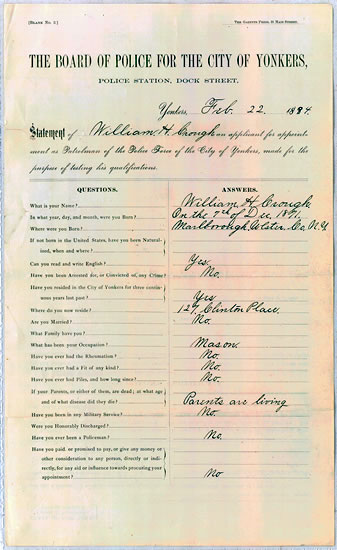 [BLANK No. 2.]
THE GAZETTE PRESS, 21 MAIN STREET.
THE BOARD OF POLICE FOR THE CITY OF YONKERS,
POLICE STATION, DOCK STREET.
Yonkers, Feb. 22 1894
Statement of William H. Crough an applicant for appoint-
ment as Patrolman of the Police Force of the City of Yonkers, made for the
purpose of testing his qualifications.
QUESTIONS. ANSWERS.
What is your Name? William H Crough
In what year, day, and month, were you Born? On the 7th of Dec 1871.
Where were you Born? Marlborough, Ulster Co. N.Y
If not born in the United States, have you been Natural-
ized, when and where?
Can you read and write English? Yes.
Have you been Arrested for, or Convicted of, any Crime? No.
Have you resided in the City of Yonkers for three contin-
uous years last past? Yes
Where do you now reside? 127 Clinton Place.
Are you Married? No.
What Family have you?
What has been your Occupation? Mason.
Have you ever had the Rheumatism? No.
Have you ever had a Fit of any kind? No.
Have you ever had Piles, and how long since? No.
If your Parents, or either of them, are dead; at what age
and of what disease did they die? Parents are living
Have you been in any Military Service? No.
Were you Honorably Discharged?
Have you ever been a Policeman? No.
Have you paid or promised to pay, or give any money or
other consideration to any person, directly or indi-
rectly, for any aid or influence towards procuring your
appointment? No